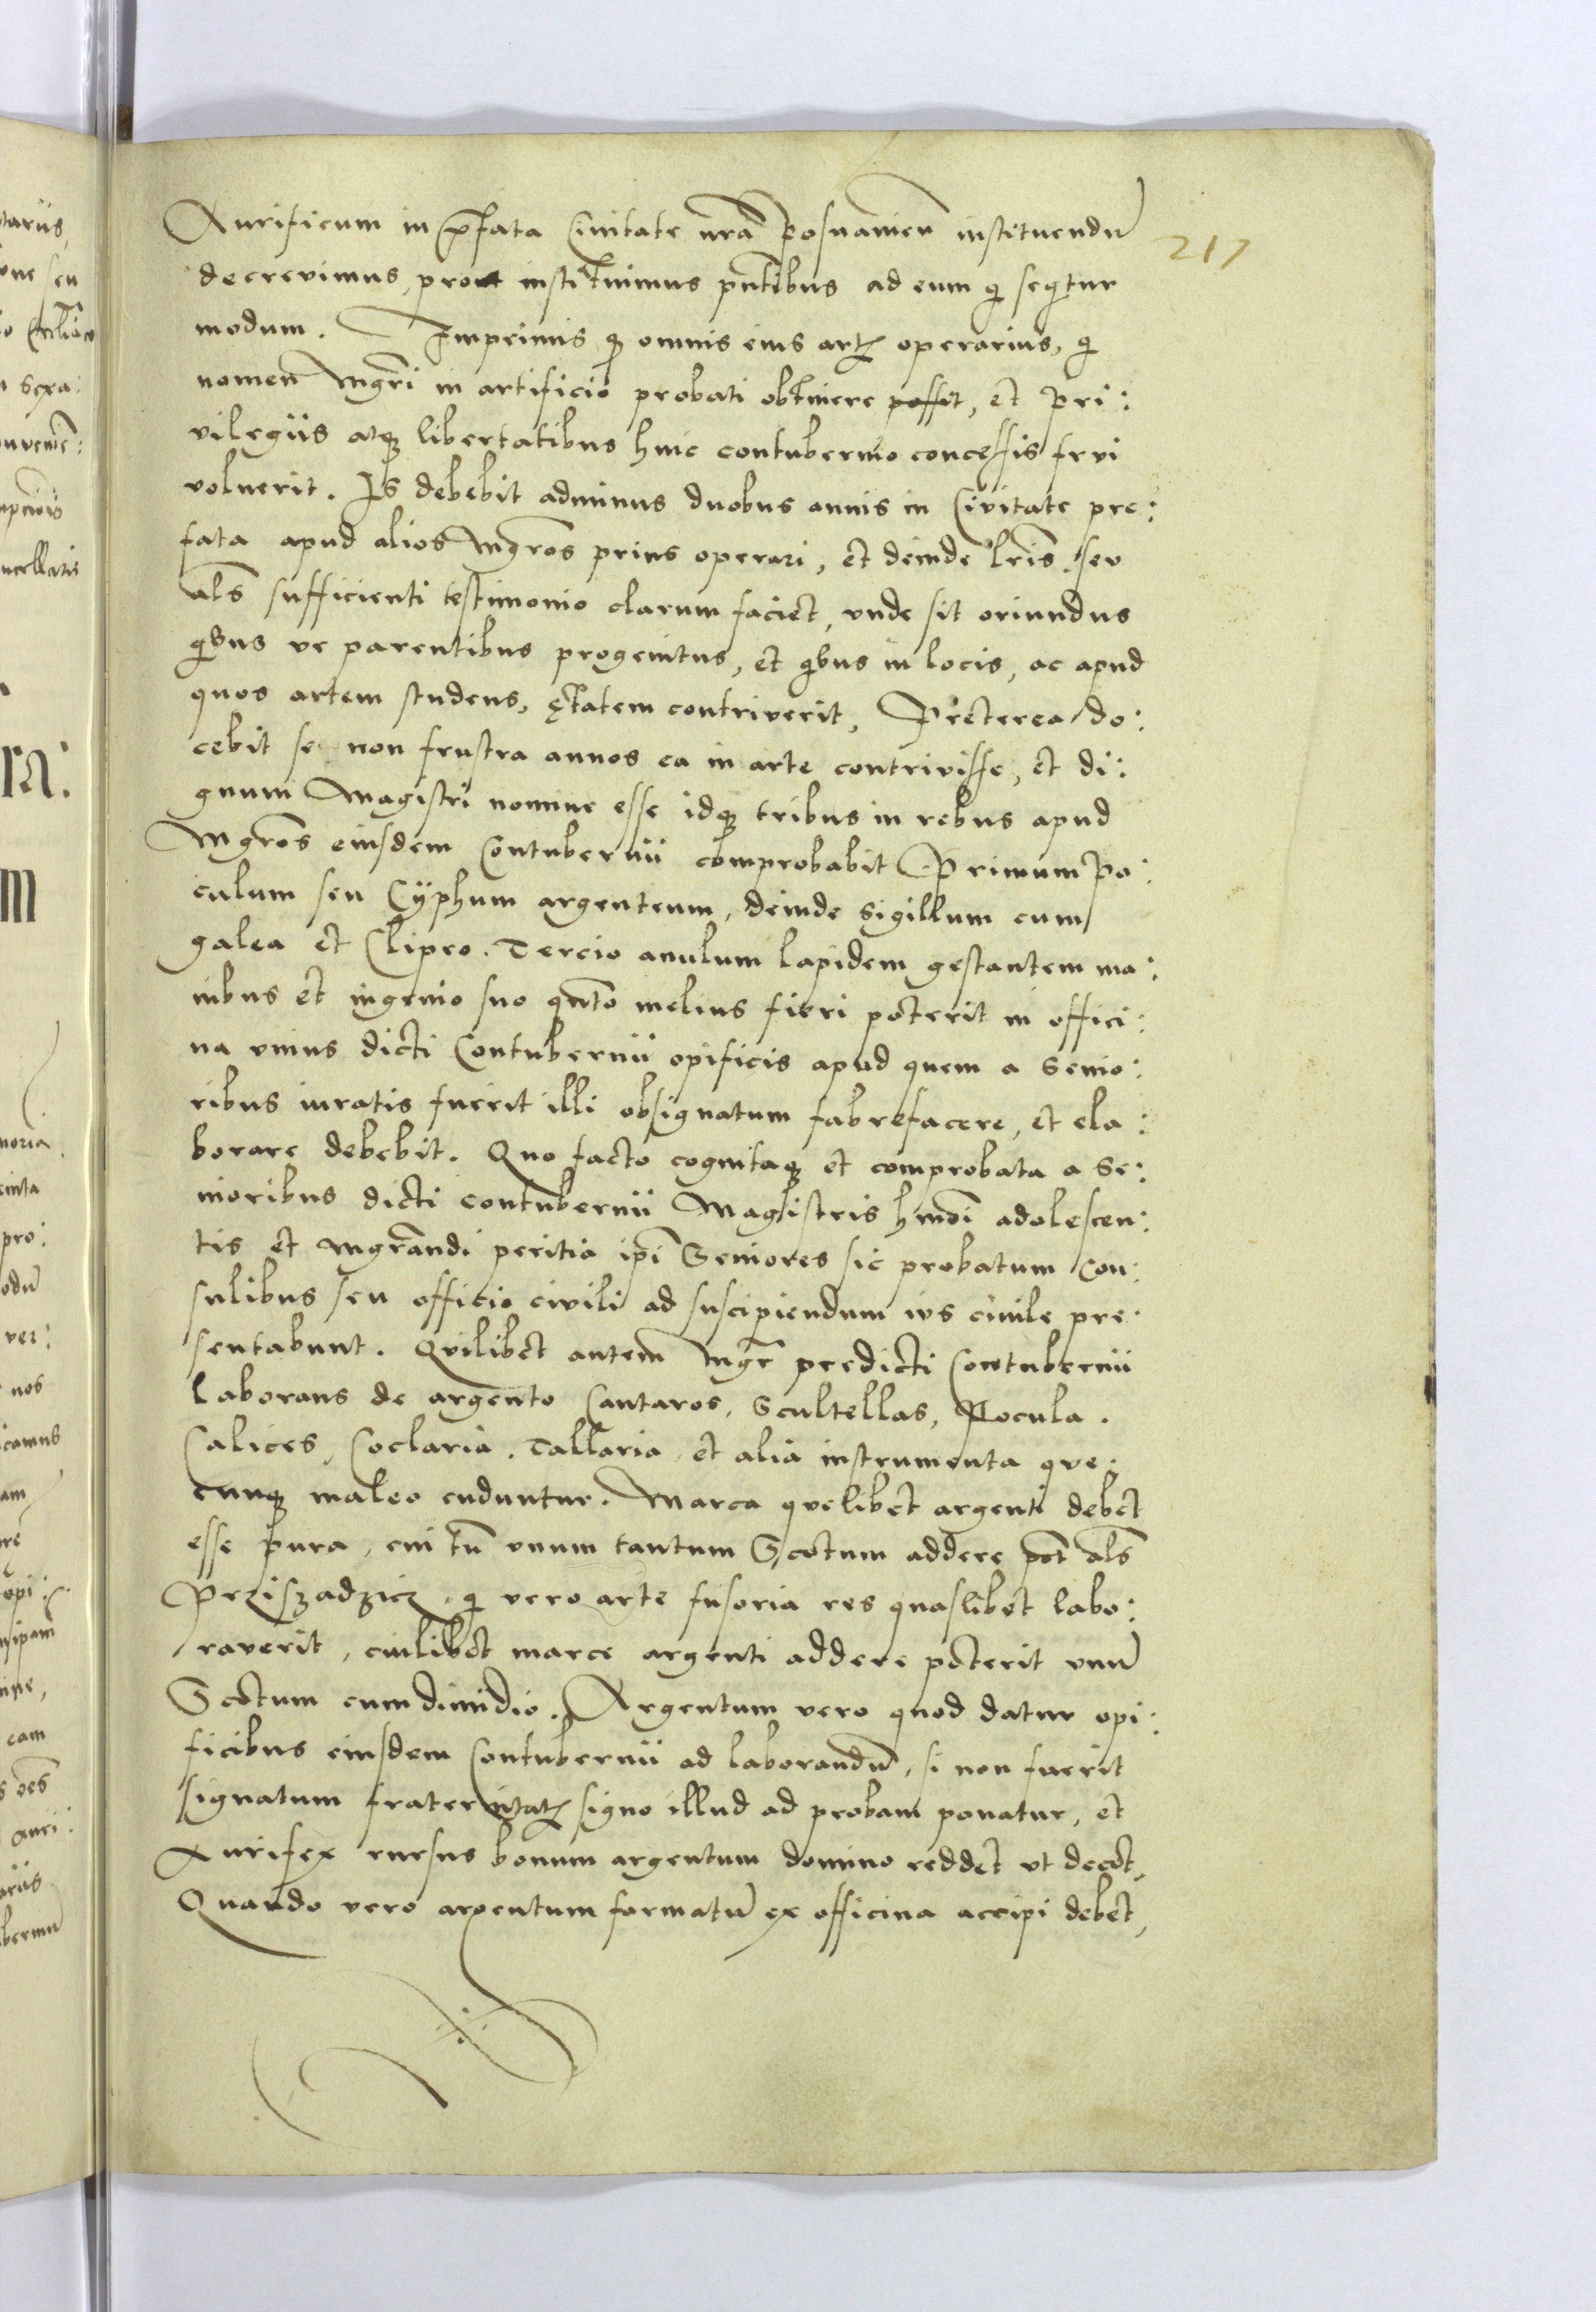 217
Aurificum in p̃fata Ciuitate nr̃a Posnanien̄ instituendũ
decrevimus, prout instituimus pñtibus ad eum qi seqitur
modum. Imprimis qz omnis eius artꝭ operarius, qi
nomen Mgrĩ in artificio probati obtinere possit, et Pri:
vilegiis atqz libertatibus huic contubernio concessis frui
voluerit. Is debebit adminus duobus annis in Civitate pre:
fata apud alios Mgrõs prius operari, et deinde lr̃is seu
al̃s sufficienti testimonio clarum faciet, vnde sit oriundus
qibus ve parentibus progenitus, et qibus in locis, ac apud
quos artem studens, ętatem contriverit, Preterea do:
cebit se non frustra annos ea in arte contrivisse, et di:
gnum Magistri nomine esse idqz tribus in rebus apud
Mgrõs eiusdem Contubernii comprobabit Primum Po:
culum seu Cÿphum argenteum, deinde sigillum cum
galea et Clipeo. Tercio anulum lapidem gestantem ma:
nibus et ingenio suo qñto melius fieri poterit in offici:
na vnius dicti Contubernii opificis apud quem a Senio:
ribus iuratis fuerit illi obsignatum fabrefacere, et ela:
borare debebit. Quo facto cognitaqz et comprobata a Se:
nioribus dicti contubernii Magistris hmõi adolescen:
tis et mgrãndi peritia ip̃i Seniores sic probatum Con:
sulibus seu officio civili ad suscipiendum ius ciuile pre:
sentabunt. Quilibet autem Mgr̃ predicti Contubernii
laborans de argento Cantaros, Scultellas, Pocula.
Calices, Coclaria. Tallaria, et alia instrumenta que:
cunqz maleo cuduntur. Marca quelibet argenti debet
esse pura, cui tñ vnum tantum Scotum addere põt al̃s
Przisżadzicz. qi vero arte fusoria res quaslibet labo:
raverit, cuilibet marce argenti addere poterit vnũ
Scotum cum dimidio. Argentum vero quod datur opi:
ficibus eiusdem Contubernii ad laborandũ, si non fuerit
signatum fraternitatꝭ signo illud ad probam ponatur, et
Aurifex rursus bonum argentum domino reddet vt decet,
Quando vero argentum formatũ ex officina accipi debet,